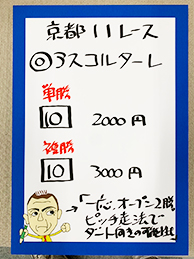 京都11レース
◎3スコルターレ
単勝
10 2000円
複勝
10 3000円
→「一応、オープン2勝
ピッチ走法で
ダート向きの可能性」